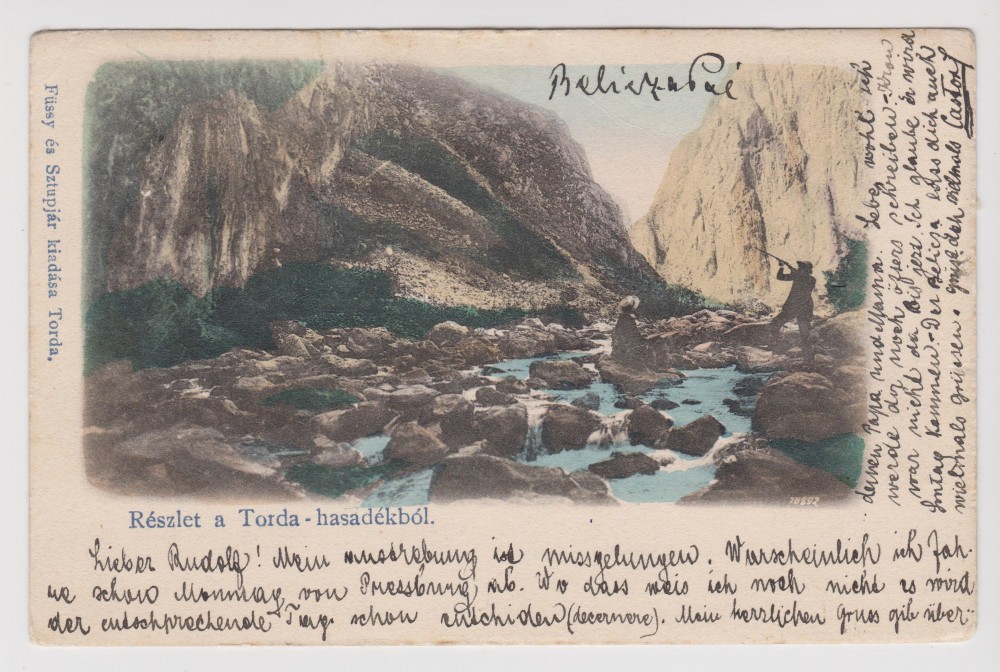 Füssy és Sztupjár kiadása Torda.
Részlet a Torda-hasadékból.
Lieber Rudolf! Mein ist missgelungen. Warscheinlich ich fah-
re schon Monntag von Pressburg ab. Wo dass weis ich noch nicht es wird
der entschprechende Tag schon entschiden (decernere). Mein herzlichen Gruss gib über
deinen Papa und Mama. Lebe wohl ich
werde dir noch öfters schreiben -
war nicht da bis jetz. Ich glaube er wird
kommen - Der Beliza lässt dich auch
vielmals grüssen. grüsst dich vielmals Gaston